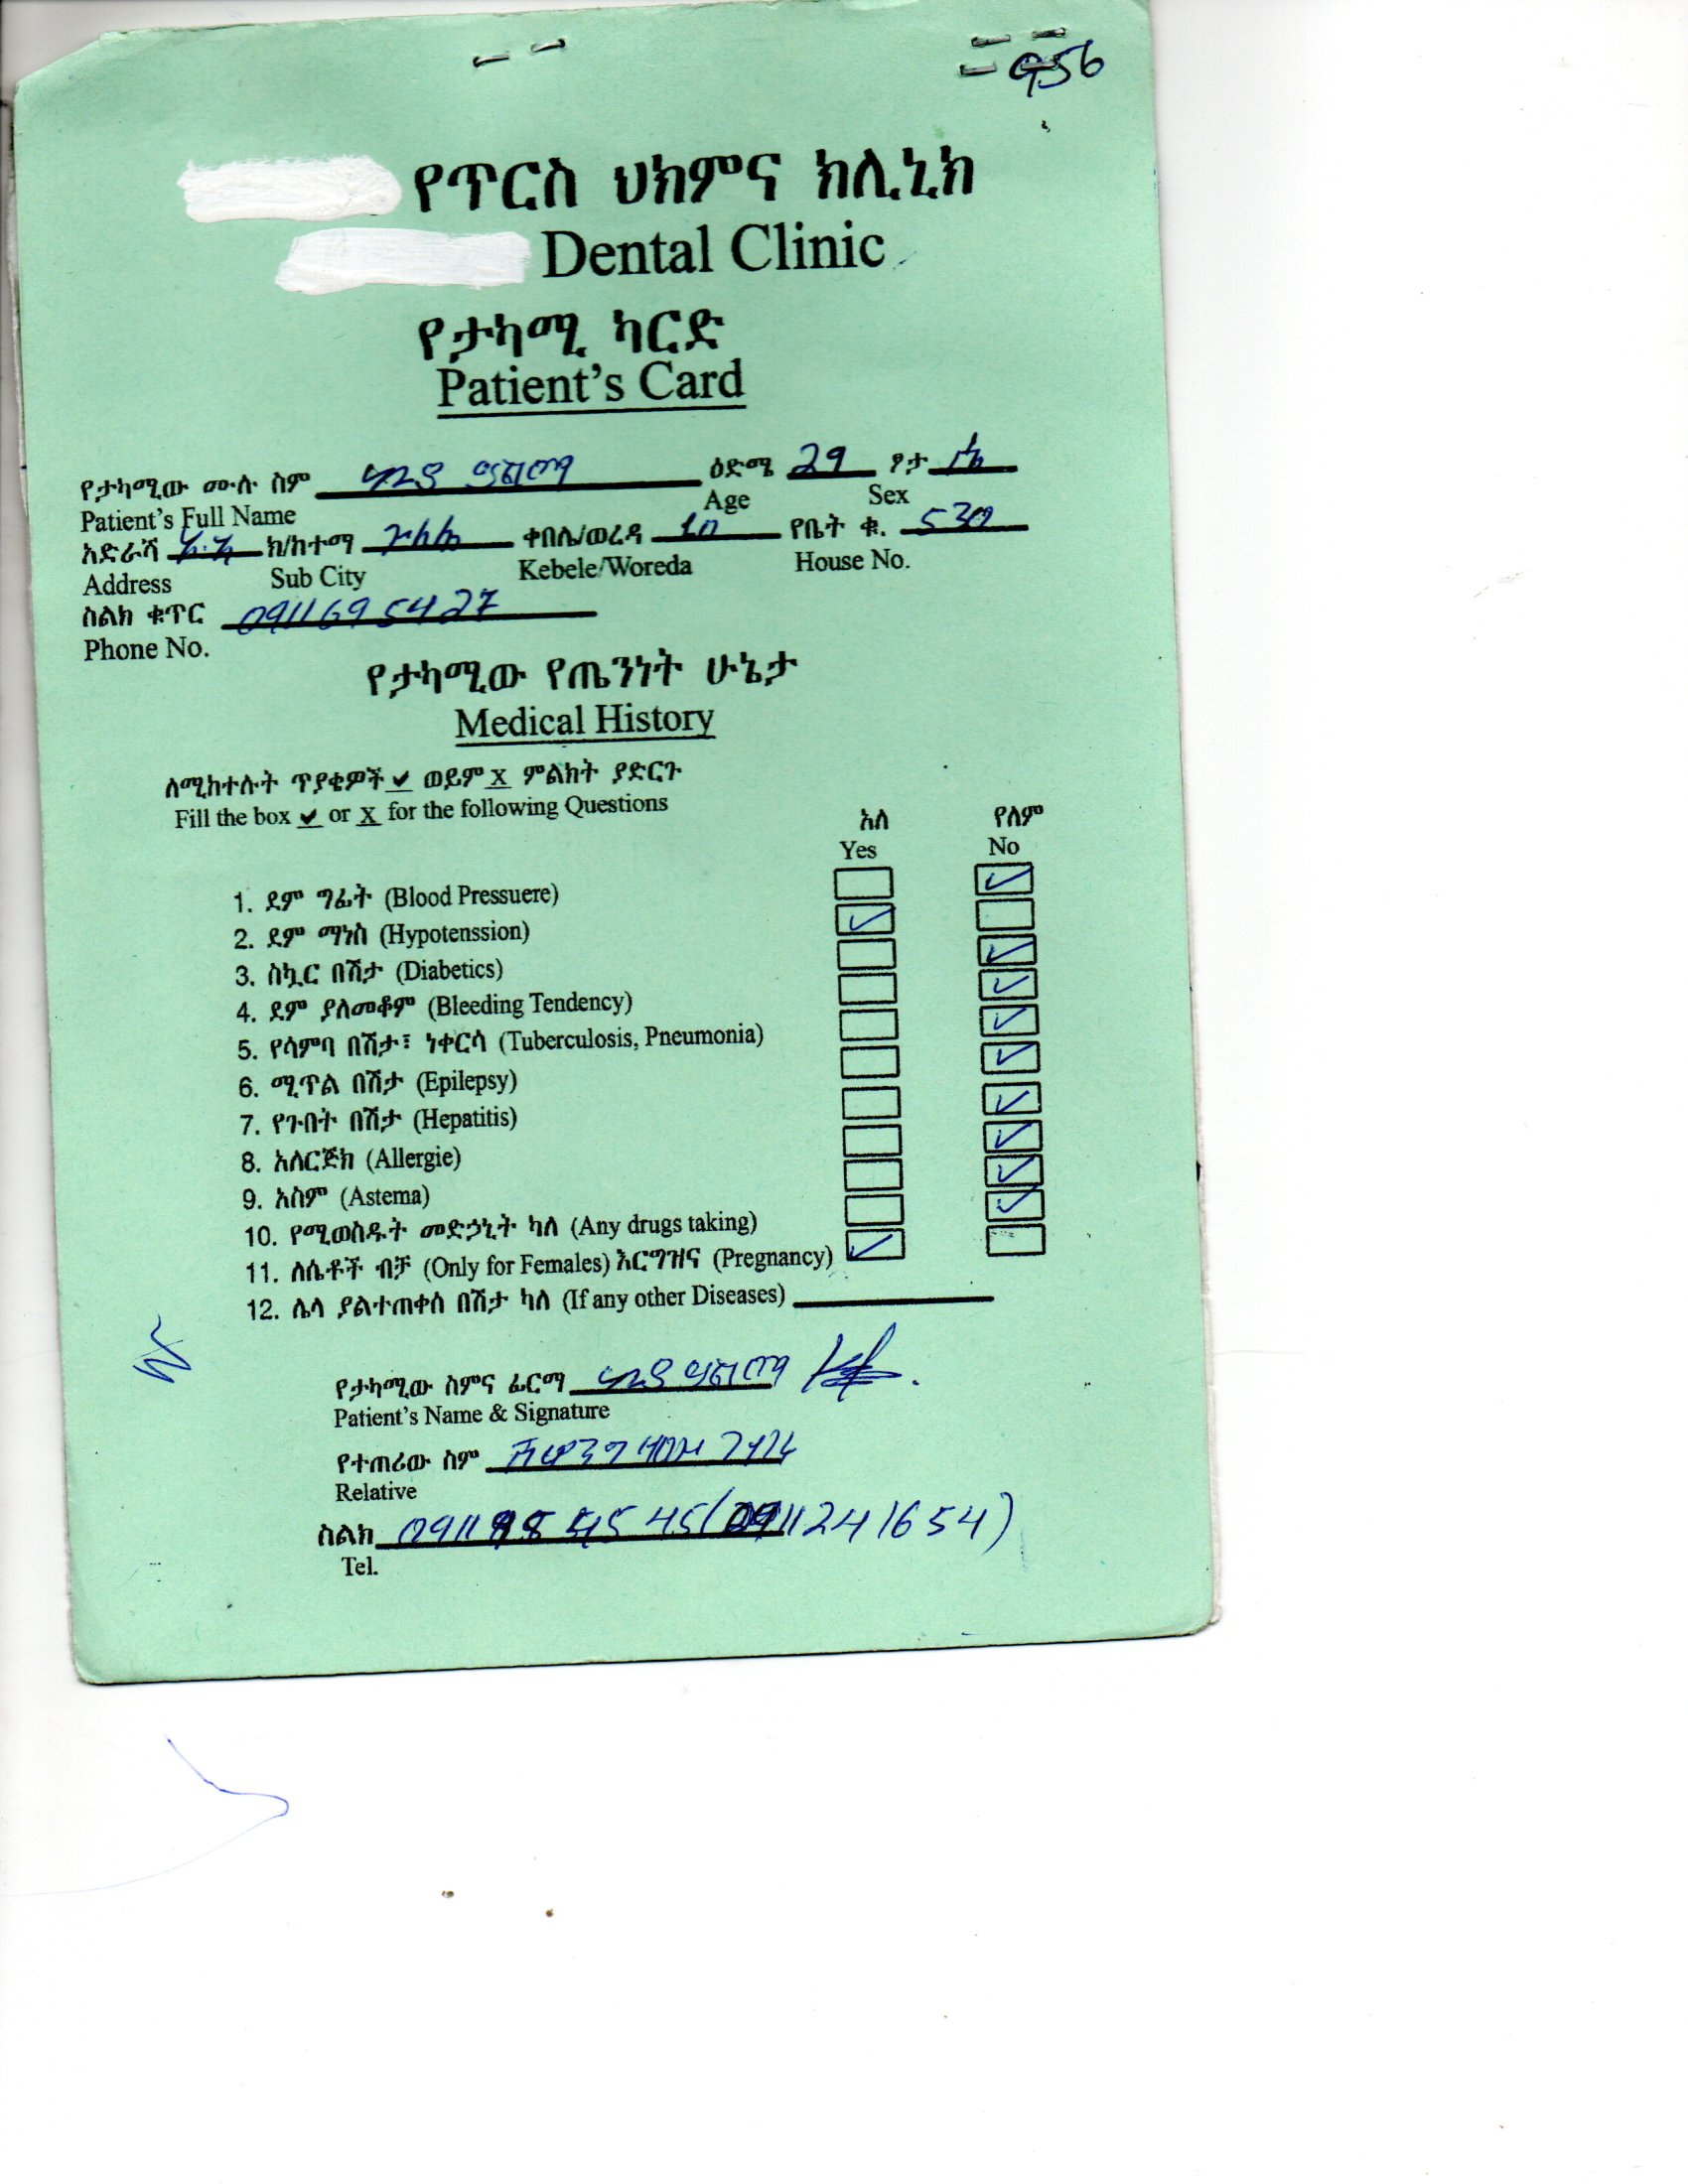 956
የጥርስ ህክምና ክሊኒክ
Dental Clinic
የታካሚ ካርድ
Patient's Card
የታካሚው ሙሉ ስም ዕድሜ 29 ፆታ ሴ
Patient's Full Name Age Sex
አድራሻ አ.አ ክ/ከተማ ጉለሌ ቀበሌ/ወረዳ 10 የቤት ቁ. 530
Address Sub City Kebele/Woreda House No.
ስልክ ቁጥር 0911695427
Phone No.
የታካሚው የጤንነት ሁኔታ
Medical History
ለሚከተሉት ጥያቄዎች ✓ ወይም X ምልክት ያድርጉ
Fill the box ✓ or X for the following Questions
አለ የለም
Yes No
1. ደም ግፊት (Blood Pressuere) ✓
2. ደም ማነስ (Hypotenssion) ✓
3. ስኳር በሽታ (Diabetics) ✓
4. ደም ያለመቆም (Bleeding Tendency) ✓
5. የሳምባ በሽታ፣ ነቀርሳ (Tuberculosis, Pneumonia) ✓
6. ሚጥል በሽታ (Epilepsy) ✓
7. የጉበት በሽታ (Hepatitis) ✓
8. አለርጅክ (Allergie) ✓
9. አስም (Astema) ✓
10. የሚወስዱት መድኃኒት ካለ (Any drugs taking) ✓
11. ለሴቶች ብቻ (Only for Females) እርግዝና (Pregnancy) ✓
12. ሌላ ያልተጠቀሰ በሽታ ካለ (If any other Diseases)
የታካሚው ስምና ፊርማ
Patient's Name & Signature
የተጠሪው ስም
Relative
ስልክ (0911241654)
Tel.